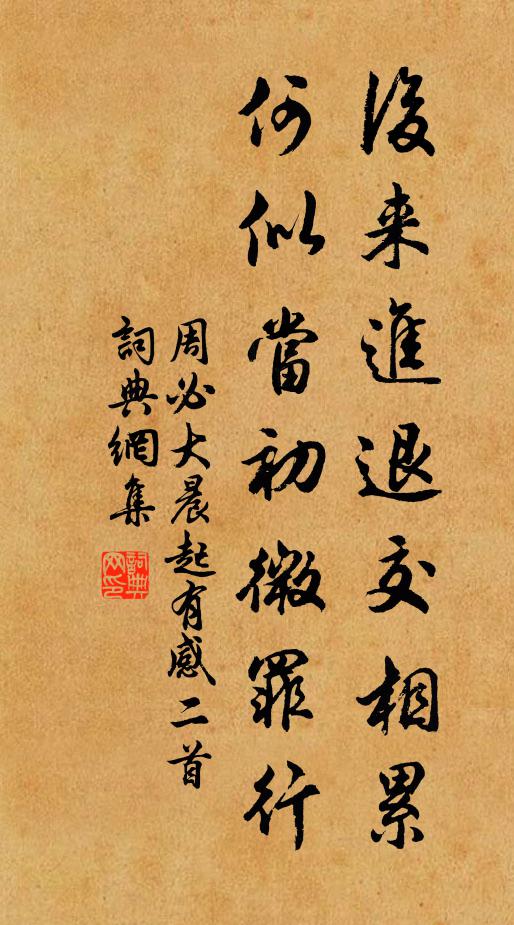 後来進退交相累
何似當初微罪行
周必大晨起有感二首
詞典網集
詞典網印